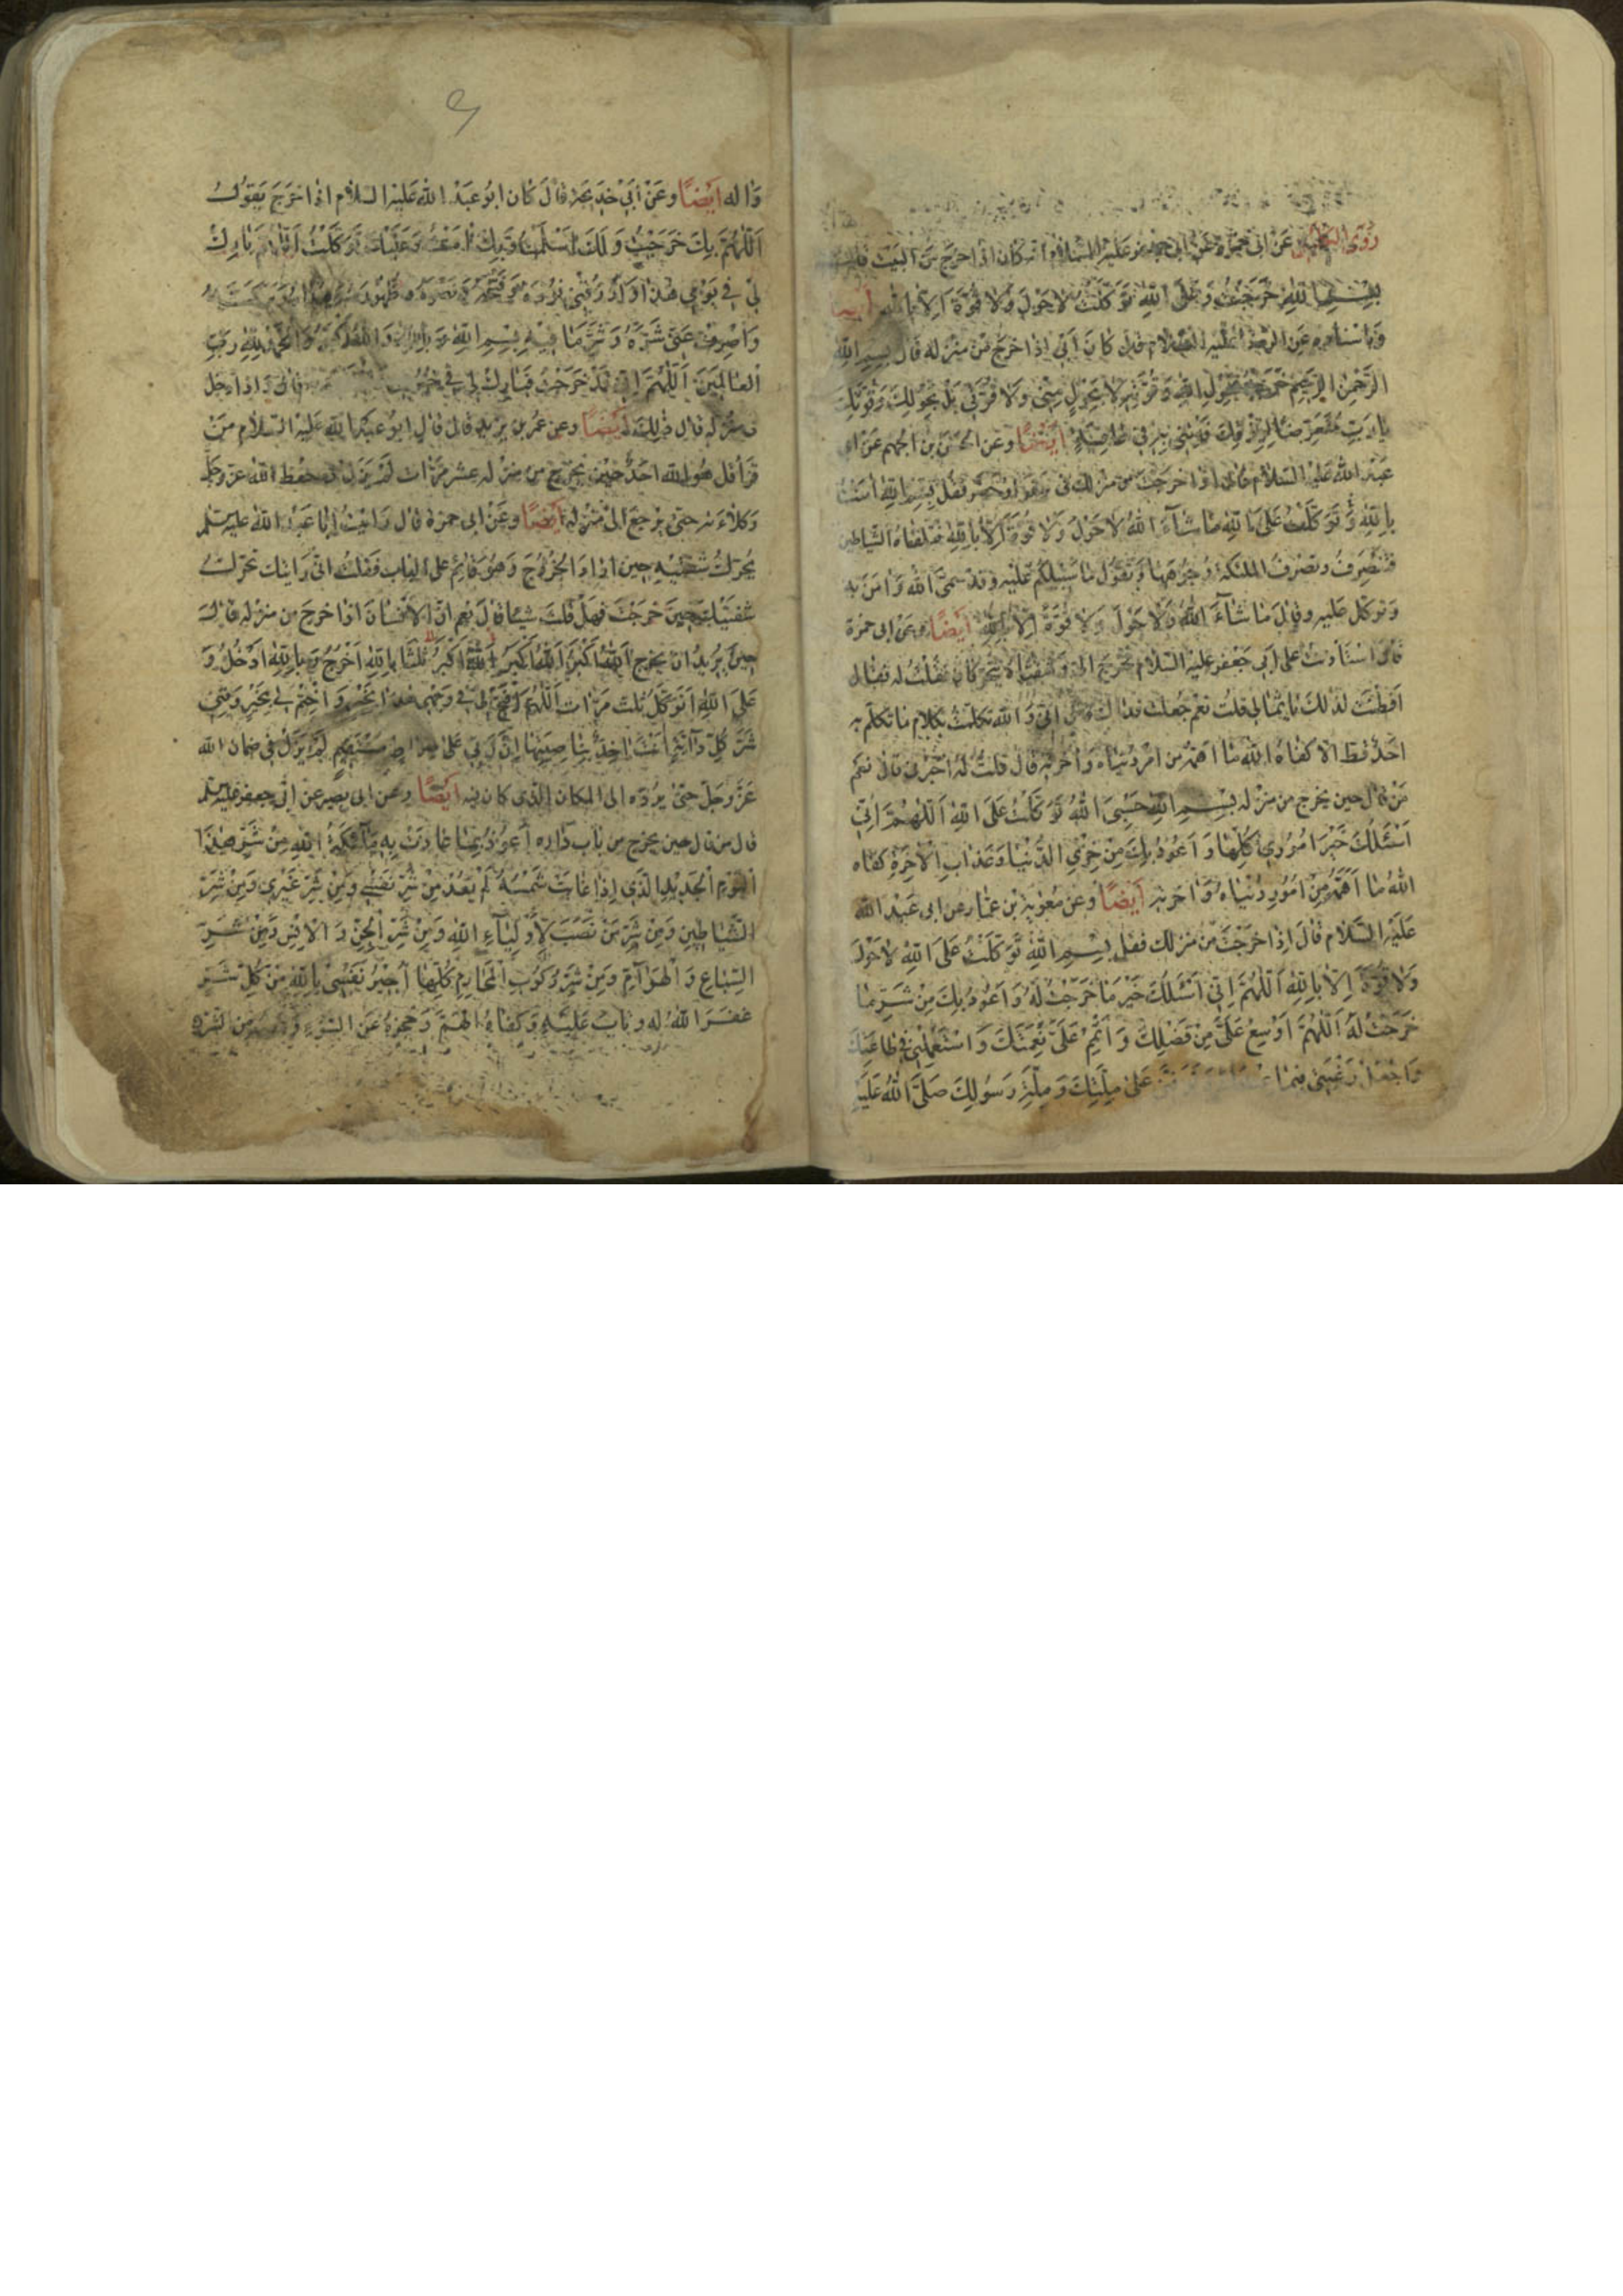 روى الكليني عن ابي حمزة عن ابي جعفر عليه السلام انه كان اذا خرج من البيت قال
بِسْمِ اللهِ خَرَجْتُ وَعَلَى اللهِ تَوَكَّلْتُ لاحَوْلَ وَلا قُوَّةَ اِلاّ بِاللهِ
وباسناده عن الرضا عليه السلام قال كان اَبي اِذا خرج من منزله قال بِسمِ اللهِ
الرَّحْمنِ الرَّحيمِ خَرَجْتُ بِحَوْلِ اللهِ وَقُوَّتِهِ لا بِحَوْلٍ مِنّي وَلا قُوَّتي بَلْ بِحَوْلِكَ وَقُوَّتِكَ
يا رَبِّ مُتَعَرِّضًا لِرِزْقِكَ فَأْتِني بِهِ في عافِيَةٍ اَيضًا وعن الحَسَن بن الجهم عن ابي
عبد الله عليه السلام قال اذا خرجت من منزلك في سفر او حضر فقل بِسْمِ اللهِ امَنْتُ
بِاللهِ وَتَوَكَّلْتُ عَلَى اللهِ ما شاءَ اللهُ لا حَوْلَ وَلا قُوَّةَ اِلاّ بِاللهِ فتلقاه الشياطين
فتنصرف وتضرب الملئكة وجوهها وتقول ما سبيلكم عليه وقد سمى الله وامن به
وتوكل عليه وقال ما شاءَ اللهُ لا حَوْلَ وَلا قُوَّةَ اِلاّ بِاللهِ اَيضًا وعن ابي حمزة
قال استاذنت على ابي جعفر عليه السلام فخرج اليّ وشفتاه تتحركان فقلت له فقال
افطنت لذلك يا ثمالي قلت نعم جعلت فداك قال اني والله تكلمت بكلام ما تكلم به
احد قط الا كفاه الله ما اهمه من امر دنياه واخرته قال قلت له اخبرني قال نعم
مَن قال حين يخرج من منزله بِسْمِ اللهِ حَسْبِيَ اللهُ تَوَكَّلْتُ عَلَى اللهِ اَللّهُمَّ اِنّي
اَسْئَلُكَ خَيْرَ اُمُوري كُلِّها وَ اَعُوذُ بِكَ مِنْ خِزْيِ الدُّنْيا وَعَذابِ الاخِرَةِ كفاه
الله ما اَهَمَّهُ مِنْ اَمُورِ دُنْياه وَاخرته اَيضًا وعن مُعوية بن عمّار عن ابي عَبد الله
عَلَيْهِ السَّلام قال اِذا خرجت من منزلك فقل بِسْمِ اللهِ تَوَكَّلْتُ عَلَى اللهِ لا حَوْلَ
وَلا قُوَّةَ اِلاّ بِاللهِ اَللّهُمَّ اِنّي اَسْئَلُكَ خَيْرَ ما خَرَجْتُ لَهُ وَ اَعُوذُ بِكَ مِنْ شَرِّ ما
خَرَجْتُ لَهُ اَللّهُمَّ اَوْسِعْ عَلَيَّ مِنْ فَضْلِكَ وَ اَتْمِمْ عَلَيَّ نِعْمَتَكَ وَ اسْتَعْمِلْني في طاعَتِكَ
وَاجْعَلْ رَغْبَتي فيما عَلى مِلَّتِكَ وَ مِلَّةِ رَسُولِكَ صَلَّى اللهُ عَلَيْهِ
وَاله اَيْضًا وعَنْ اَبي خديجة قال كان ابو عبد الله عليه السلام اذا خرج يَقولُ
اَللّهُمَّ بِكَ خَرَجْتُ وَ لَكَ اَسْلَمْتُ وَبِكَ امَنْتُ وَعَلَيْكَ تَوَكَّلْتُ اَللّهُمَّ بارِكْ
لي في يَوْمي هذا وَارْزُقْني فَوْزَهُ وَفَتْحَهُ وَنَصْرَهُ وَطَهُورَهُ وَبَرَكَتَهُ
وَاصْرِفْ عَنّي شَرَّهُ وَ شَرَّ ما فيهِ بِسْمِ اللهِ وَ بِاللهِ وَ اللهُ اَكْبَرُ وَ الْحَمْدُ لِلّهِ رَبِّ
الْعالَمينَ اَللّهُمَّ اِنّي قَدْ خَرَجْتُ فَبارِكْ لي في خُرُوجي قال واذا دخل
في منزله قال ذلك اَيضًا وعن عمر بن يزيد قال قال ابو عبد الله عليه السلام مَن
قرأ قل هو الله احد حين يخرج من منزله عشر مرّات لم يزل في حفظ الله عزّ وجلّ
وكلاءته حتى يرجع الى منزله اَيضًا وعن ابي حمزة قال رايت ابا عبد الله عليه السلم
يحرّك شفتيه حين اراد الخروج وهو قائم على الباب فقلت انّي رايتك تحرّك
شفتيك حين خرجت فهل قلت شيئا قال نعم انّ الانسان اذا خرج من منزله قال
حين يريد ان يخرج اَللهُ اَكْبَرُ اَللهُ اَكْبَرُ اَللهُ اَكْبَرُ ثلثا بِاللهِ اَخْرُجُ وَ بِاللهِ اَدْخُلُ وَ
عَلَى اللهِ اَتَوَكَّلُ ثلث مرّات اَللّهُمَّ افْتَحْ لي في وَجْهي هذا بِخَيْرٍ وَ اخْتِمْ لي بِخَيْرٍ وَقِني
شَرَّ كُلِّ دابَّةٍ اَنْتَ اخِذٌ بِناصِيَتِها اِنَّ رَبّي عَلى صِراطٍ مُسْتَقيمٍ لم يزل في ضمان الله
عزّ وجلّ حتى يردّه الى المكان الذي كان فيه اَيضًا وعن ابي بصير عن ابي جعفر عليه السلم
قال من قال حين يخرج من باب داره اَعُوذُ بِما عاذَتْ بِهِ مَلائِكَةُ اللهِ مِنْ شَرِّ هذَا
الْيَوْمِ الْجَديدِ الَّذي اِذا غابَتْ شَمْسُهُ لَمْ يَعُدْ مِنْ شَرِّ نَفْسي وَمِنْ شَرِّ غَيْري وَمِنْ شَرِّ
الشَّياطينِ وَمِنْ شَرِّ مَنْ نَصَبَ لِاَوْلِياءِ اللهِ وَمِنْ شَرِّ الْجِنِّ وَ الْاِنْسِ وَمِنْ شَرِّ
السِّباعِ وَ الْهَوامِّ وَمِنْ شَرِّ رُكُوبِ الْمَحارِمِ كُلِّها اُجيرُ نَفْسي بِاللهِ مِنْ كُلِّ شَرٍّ
غَفَرَ اللهُ له وتابَ عَلَيْهِ وَكَفاهُ الهَمَّ وَحجزهُ عَن السُّوءِ وَعصمه من الشرّ